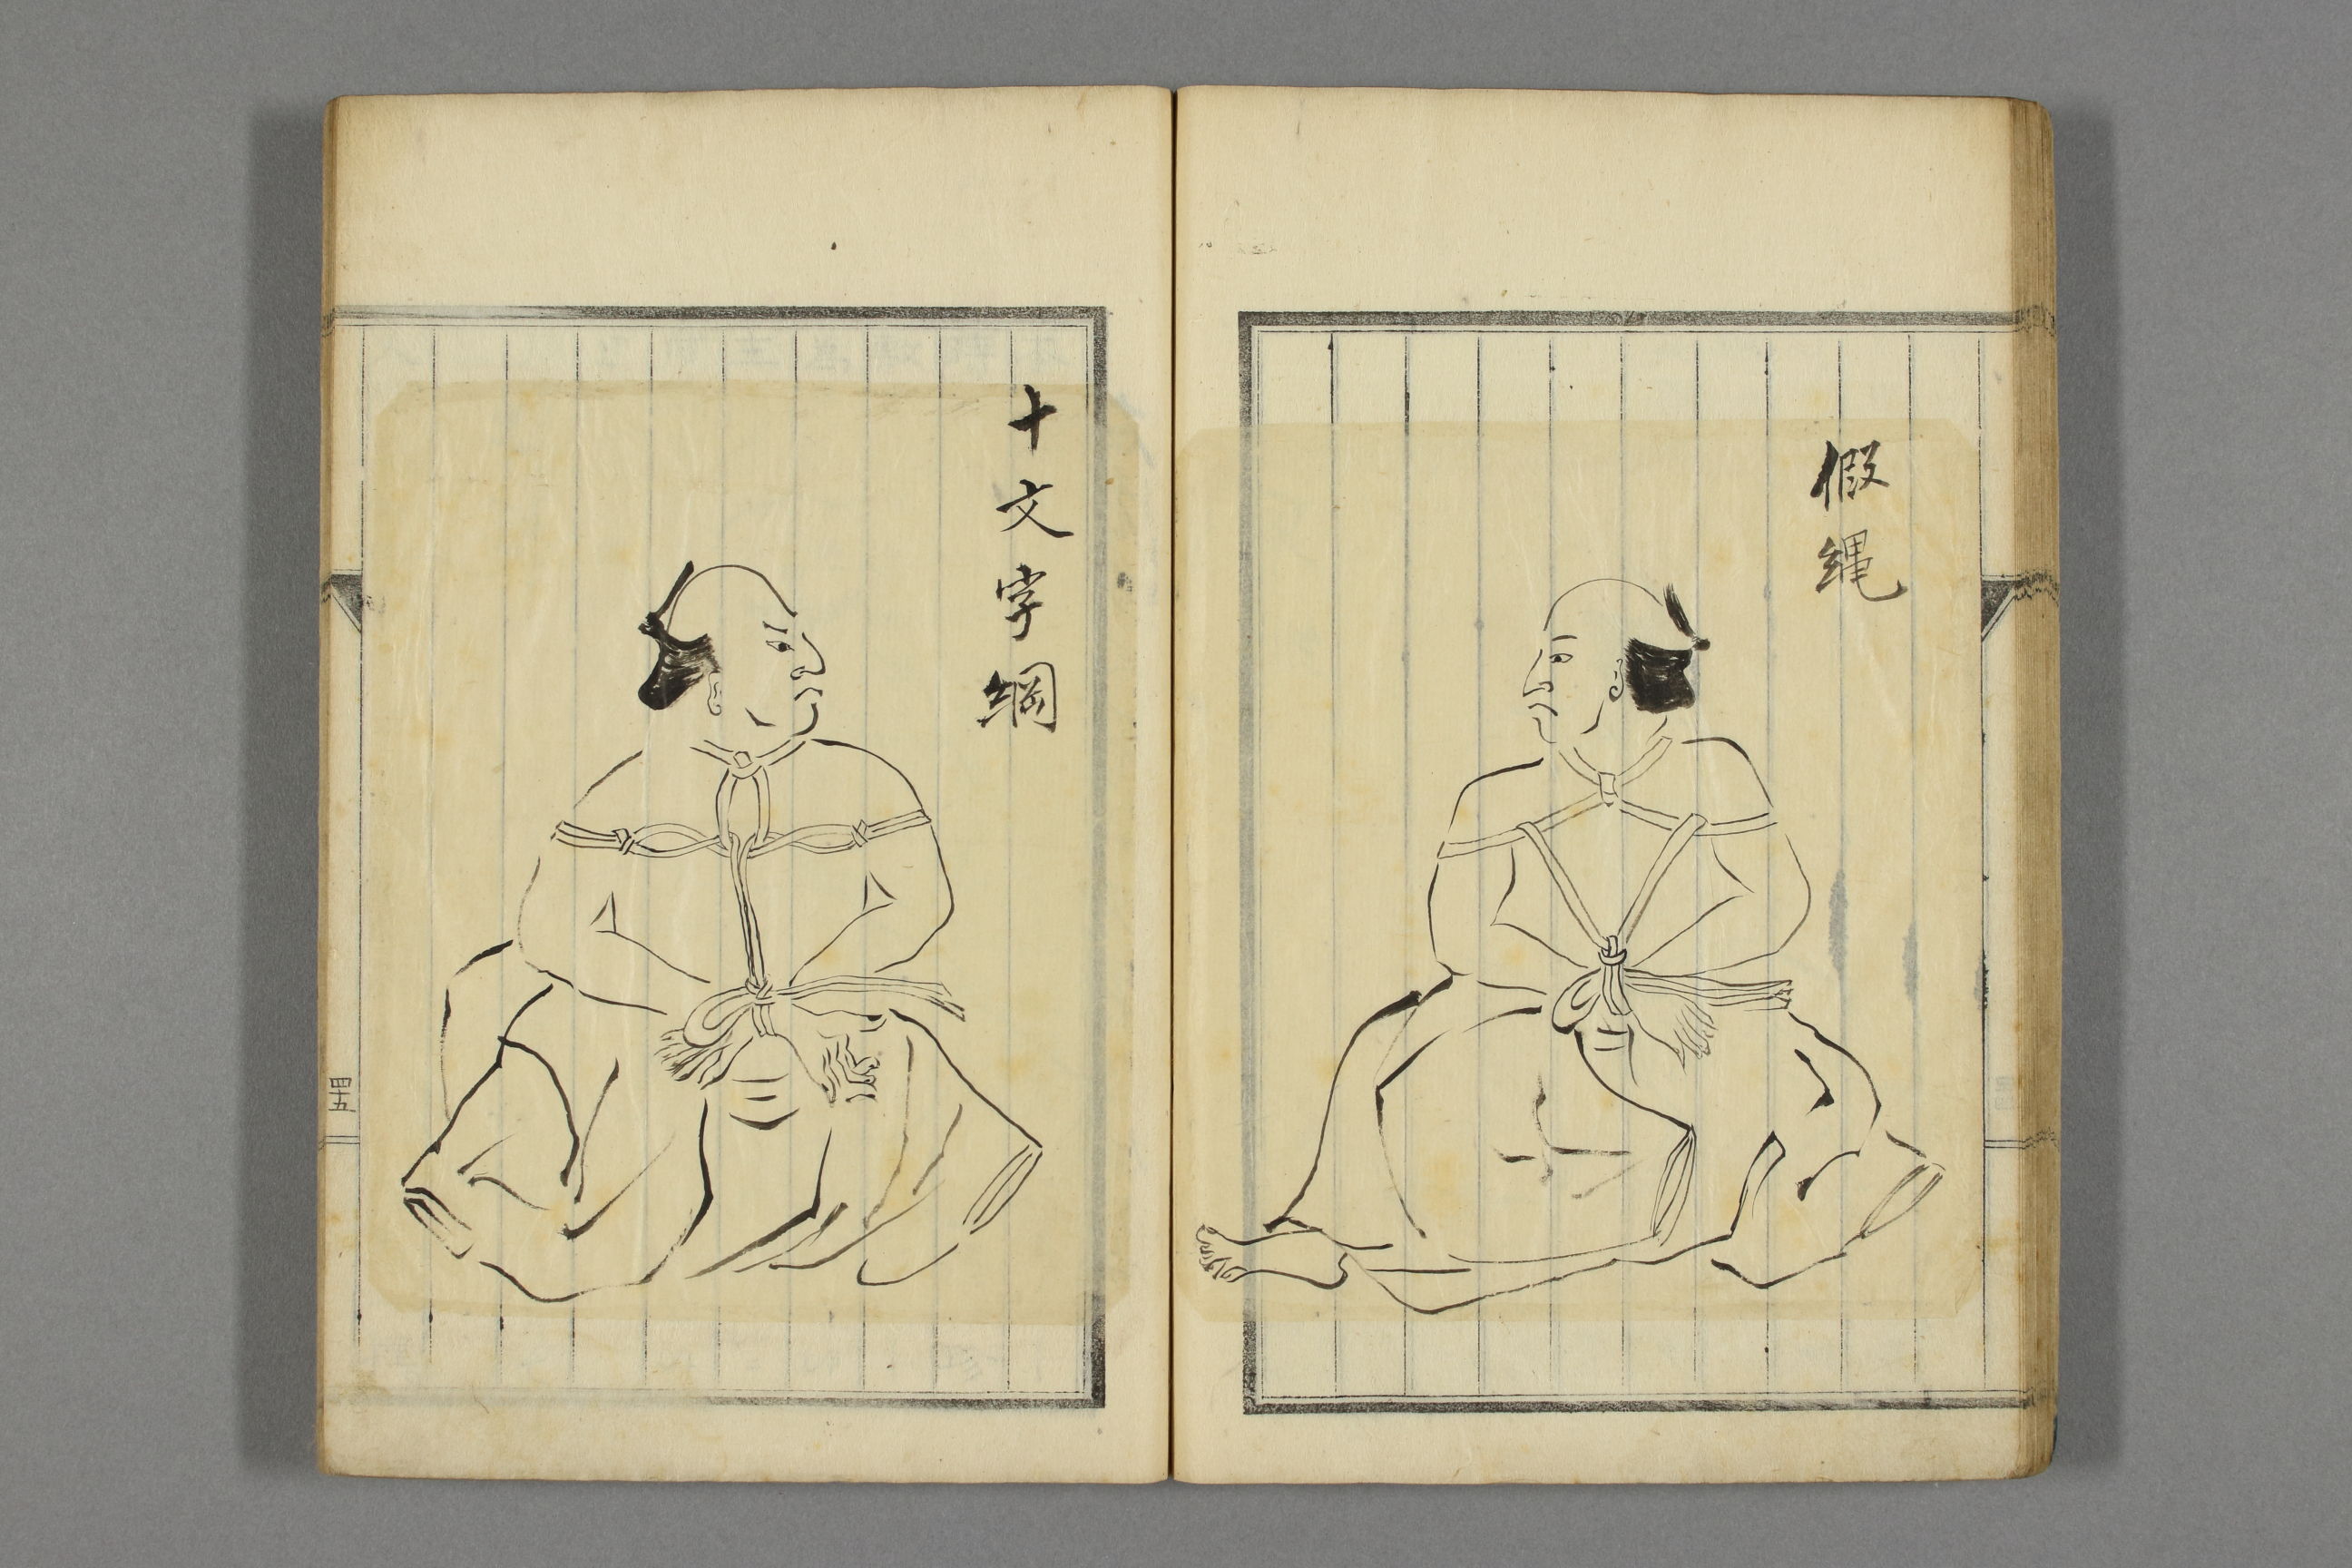 假縄
十文字綱
四十五